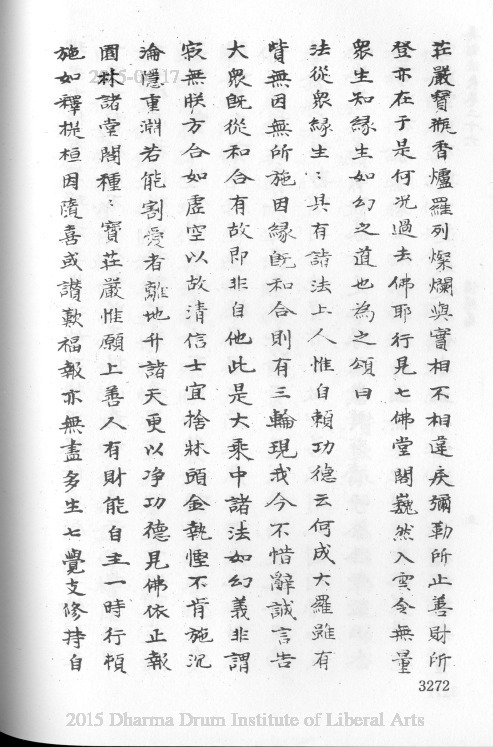 莊嚴寶瓶香爐羅列燦爛與實相不相違戾彌勒所止善財所
登亦在于是何况過去佛耶行見七佛堂閣巍然入雲令無量
衆生知緣生如幻之道也為之頌曰
法從衆緣生〻具有諸法上人惟自賴功德云何成大羅雖有
皆無因無所施因緣既和合則有三輪現我今不惜辭誠言告
大衆既從和合有故即非自他此是大乘中諸法如幻義非謂
寂無朕方合如虛空以故清信士宜捨牀頭金執慳不肯施沉
淪隱重淵若能割愛者離地升諸天更以净功德見佛依正報
園林諸堂閣種〻寶莊嚴惟願上善人有財能自主一時行頓
施如釋提桓因隨喜或讃歎福報亦無盡多生七覺支修持自
3272
2015 Dharma Drum Institute of Liberal Arts